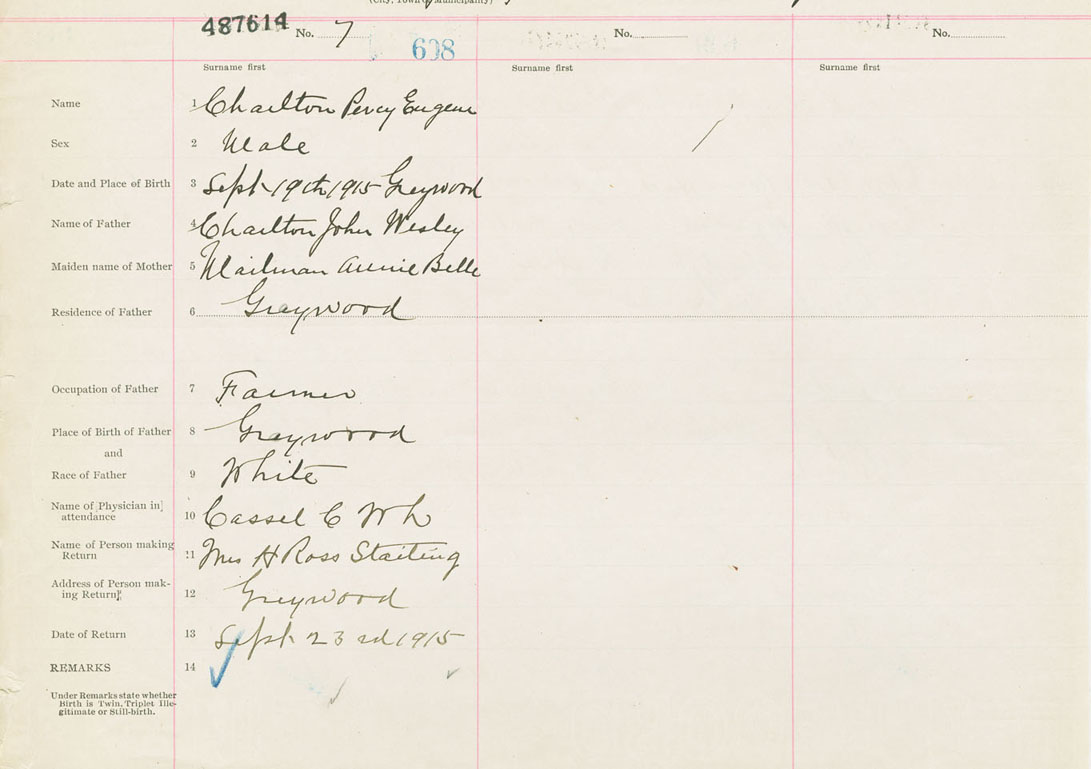 (City, Town or Municipality)
487614 No. 7 No. No.
608
Surname first Surname first Surname first
Name 1 Charlton Percy Eugene
Sex 2 Male
Date and Place of Birth 3 Sept 19th 1915 Greywood
Name of Father 4 Charlton John Wesley
Maiden name of Mother 5 Mailman Annie Belle
Residence of Father 6 Graywood
Occupation of Father 7 Farmer
Place of Birth of Father 8 Graywood
and
Race of Father 9 White
Name of [Physician in]
attendance 10 Cassel C
Name of Person making
Return 11 Mrs H Ross
Address of Person mak-
ing Return] 12 Greywood
Date of Return 13 Sept 23rd 1915
REMARKS 14
Under Remarks state whether
Birth is Twin, Triplet Ille-
gitimate or Still-birth.